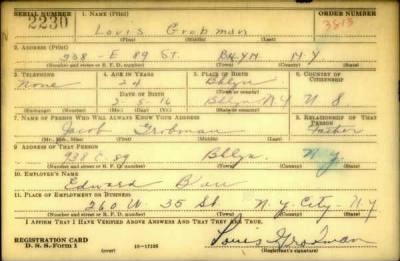 SERIAL NUMBER 1. NAME (Print) ORDER NUMBER
2230 Louis Grobman 3813
(First) (Middle) (Last)
2. ADDRESS (Print)
938 - E 89 St. BKLYN N-Y
(Number and street or R. F. D. number) (Town) (County) (State)
3. TELEPHONE 4. AGE IN YEARS 5. PLACE OF BIRTH 6. COUNTRY OF CITIZENSHIP
None 24 Bklyn
DATE OF BIRTH (Town or county)
2-8-16 Bklyn N.Y U S
(Exchange) (Number) (Mo.) (Day) (Yr.) (State or country)
7. NAME OF PERSON WHO WILL ALWAYS KNOW YOUR ADDRESS 8. RELATIONSHIP OF THAT PERSON
Jacob Grobman Father
(Mr., Mrs., Miss) (First) (Middle) (Last)
9. ADDRESS OF THAT PERSON
938 E. 89 Bklyn. N.Y
(Number and street or R. F. D. number) (Town) (County) (State)
10. EMPLOYER'S NAME
Edward
11. PLACE OF EMPLOYMENT OR BUSINESS
260 W - 35 St N.Y. City - N.Y
(Number and street or R. F. D. number) (Town) (County) (State)
I AFFIRM THAT I HAVE VERIFIED ABOVE ANSWERS AND THAT THEY ARE TRUE.
REGISTRATION CARD
D. S. S. Form 1 Louis Grobman
(Registrant's signature)